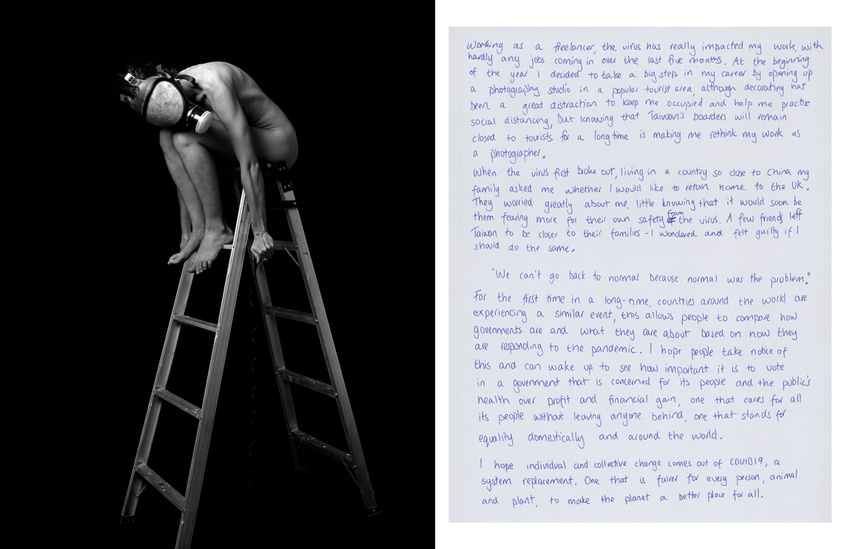 Working as a freelancer, the virus has really impacted my work, with
hardly any jobs coming in over the last five months. At the beginning
of the year I decided to take a big step in my career by opening up
a photography studio in a popular tourist area, although decorating has
been a great distraction to keep me occupied and help me practise
social distancing, but knowing that Taiwan's boarders will remain
closed to tourists for a long time is making me rethink my work as
a photographer.
When the virus first broke out, living in a country so close to China my
family asked me whether I would like to return home to the UK.
They worried greatly about me, little knowing that it would soon be
them fearing more for their own safety from the virus. A few friends left
Taiwan to be closer to their families - I wondered and felt guilty if I
should do the same.
"We can't go back to normal because normal was the problem."
For the first time in a long-time, countries around the world are
experiencing a similar event, this allows people to compare how
governments are and what they care about based on how they
are responding to the pandemic. I hope people take notice of
this and can wake up to see how important it is to vote
in a government that is concerned for its people and the public's
health over profit and financial gain, one that cares for all
its people without leaving anyone behind, one that stands for
equality domestically and around the world.
I hope individual and collective change comes out of COVID19, a
system replacement. One that is fairer for every person, animal
and plant, to make the planet a better place for all.